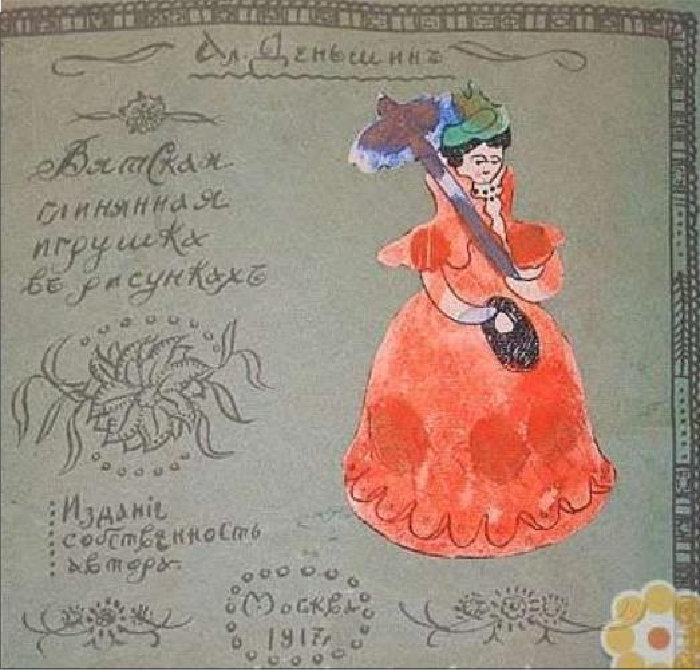 Ал. Деньшинъ
Вятская
глинянная
игрушка
въ рисункахъ
Изданіе
собственность
автора.
Москва
1917г.